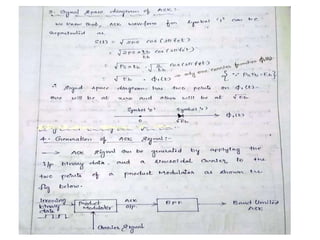 3. Signal Space diagram of ASK :-
We know that, ASK waveform for Symbol '1' can be
represented as
S(t) = √2Ps cos(2πfct)
= √Ps·Tb · √2/Tb cos(2πfct)
= √PsTb φ1(t) → only one carrier function φ1(t)
∴ Signal space diagram has two points on φ1(t)-
One will be at zero and other will be at √PsTb
Symbol '0' Symbol '1'
0 √PsTb → φ1(t)
4. Generation of ASK Signal :-
→ ASK Signal can be generated by applying the
i/p binary data and a Sinusoidal Carrier to the
two points of a product Modulator as shown the
fig below.
Incoming binary data
Product Modulator
ASK o/p.
BPF
Band Limited ASK
Carrier Signal